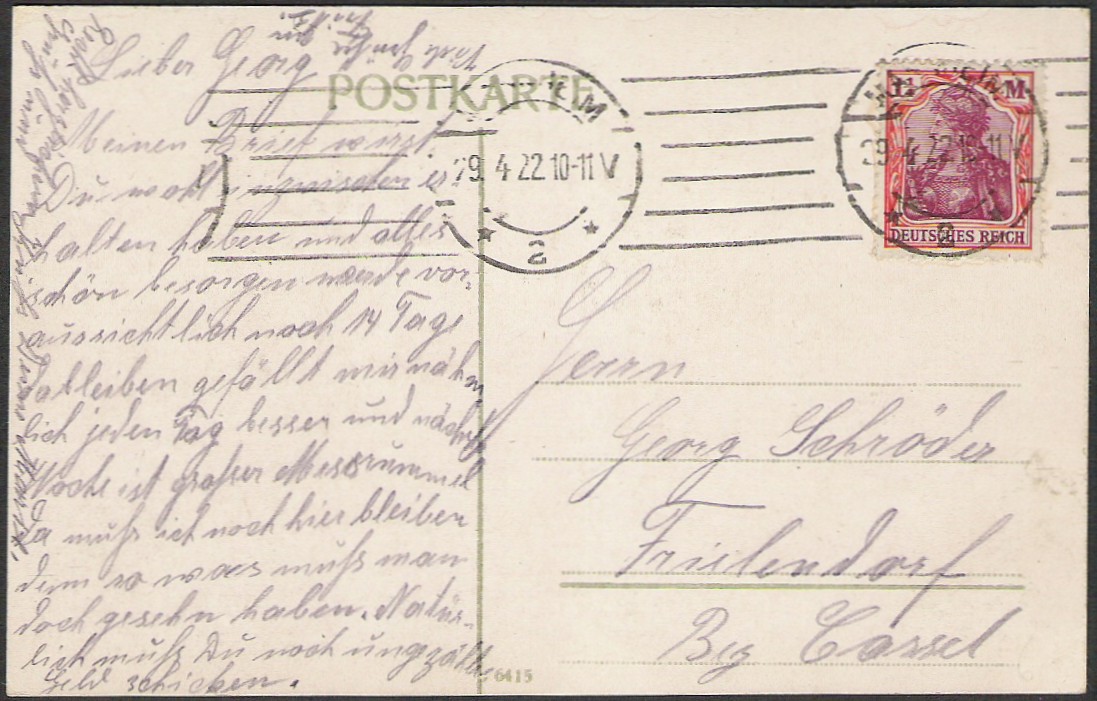 Lieber Georg
Meinen Brief wirst
Du wohl inzwischen er-
halten haben und alles
schön besorgen werde vor-
aussichtlich noch 14 Tage
dableiben gefällt mir nähm
lich jeden Tag besser und nächste
Woche ist großer Messrummel
Da muß ich noch hier bleiben
denn so was muß man
doch gesehn haben. Natür-
lich muß Du noch ungezählt
Geld schicken.
POSTKARTE
HEIM
29.4.22.10-11 V
* 2 *
1¼ M
DEUTSCHES REICH
29.4.22.10-11 V
Herrn
Georg Schröder
Frielendorf
Bez Cassel
6415